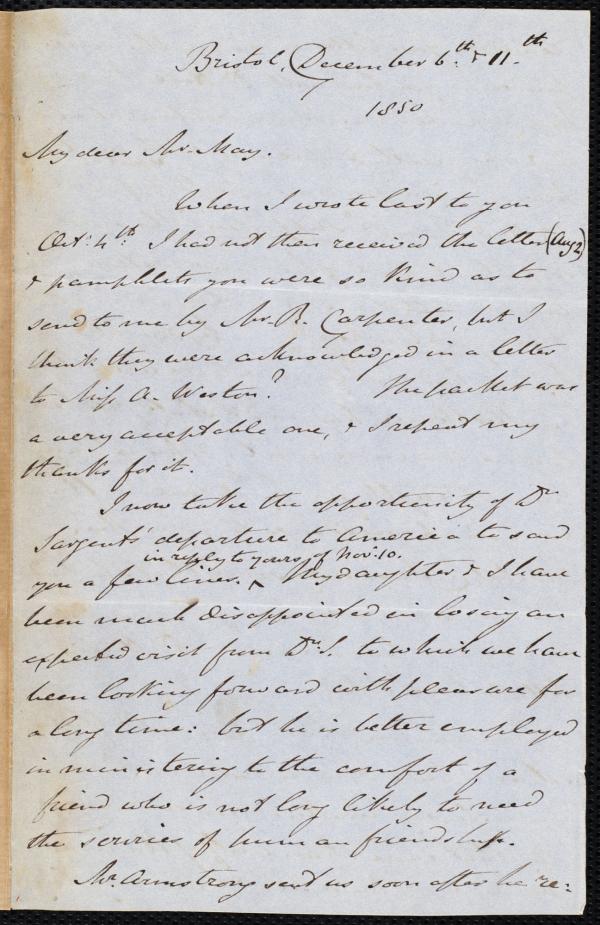 Bristol, December 6.th & 11.th
1850
My dear Mr. May.
When I wrote last to you
Oct: 4th. I had not then received the letter (Aug 2)
& pamphlets you were so kind as to
send to me by Mr. R. Carpenter, but I
think they were acknowledged in a letter
to Miss A. Weston? The packet was
a very acceptable one, & I repeat my
thanks for it.
I now take the opportunity of Dr
Sargent's departure to America to send
in reply to yours of Nov: 10.
you a few lines. ^ My daughter & I have
been much disappointed in losing an
expected visit from Dr. S. to which we have
been looking forward with pleasure for
a long time: but he is better employed
in ministering to the comfort of a
friend who is not long likely to need
the services of human friendship.
Mr. Armstrong sent us soon after he re: